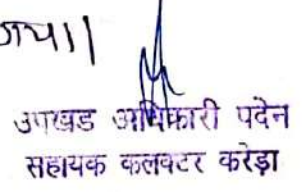 उपखड अधिकारी पदेन
सहायक कलक्टर करेड़ा